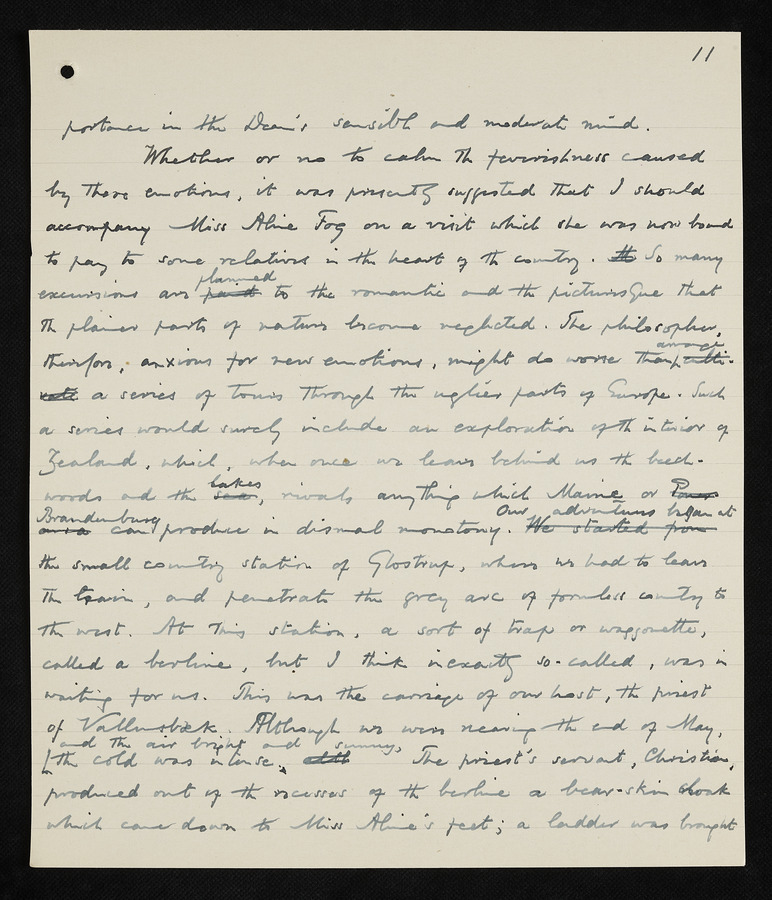 11
portance in the Dean's sensible and moderate mind.
Whether or no to calm the feverishness caused
by these emotions, it was presently suggested that I should
accompany Miss Aline Fog on a visit which she was now bound
to pay to some relatives in the heart of the country. So many
planned
excursions are to the romantic and the picturesque that
the plainer parts of nature become neglected. The philosopher,
arrange
therefore, anxious for new emotions, might do worse than
a series of tours through the uglier parts of Europe. Such
a series would surely include an exploration of the interior of
Zealand, which, when once we leave behind us the beech-
lakes
woods and the sea, rivals anything which Maine or
Brandenburg Our adventures began at
can produce in dismal monotony. We started from
the small country station of Glostrup, where we had to leave
the train, and penetrate the grey arc of formless country to
the west. At this station, a sort of trap or waggonette,
called a berline, but I think inexactly so-called, was in
waiting for us. This was the carriage of our host, the priest
of Vallensbæk. Although we were nearing the end of May,
and the air bright and sunny,
the cold was intense. The priest's servant, Christian,
produced out of the recesses of the berline a bear-skin cloak
which came down to Miss Aline's feet; a ladder was brought